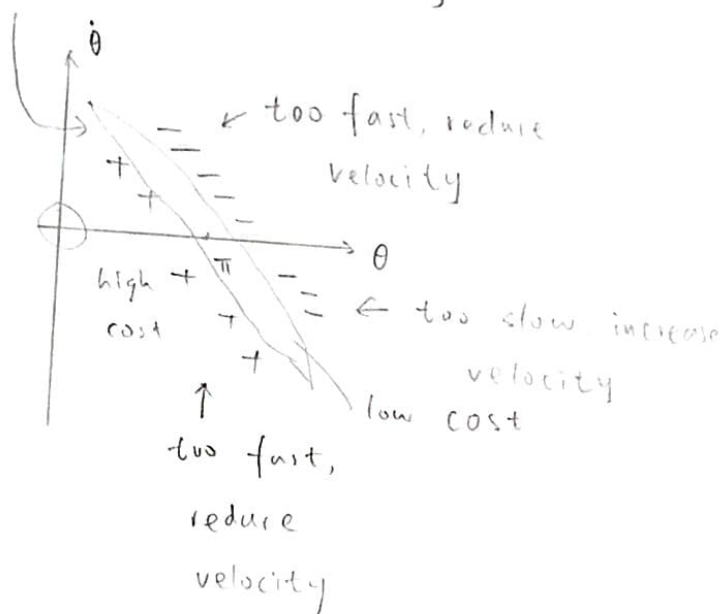 θ̇
← too fast, reduce
velocity
− − − − −
+ +
θ
π
high + − − −
cost + +
← too slow, increase
velocity
low cost
↑
too fast,
reduce
velocity